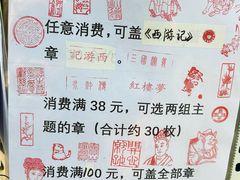 任意消费，可盖《西游记》
章 記游西 三國演義
紅樓夢
消费满38元，可选两组主
题的章（合计约30枚）
消费满100元，可盖全部章